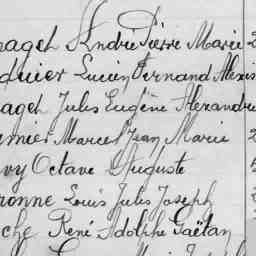 naget André Pierre Marie 2
duier Lucien Fernand Alexis
naget Jules Eugène Alexandre
rnier Marcel Jean Marie 2
vy Octave Auguste
ronne Louis Jules Joseph
che René Adolphe Gaëtan